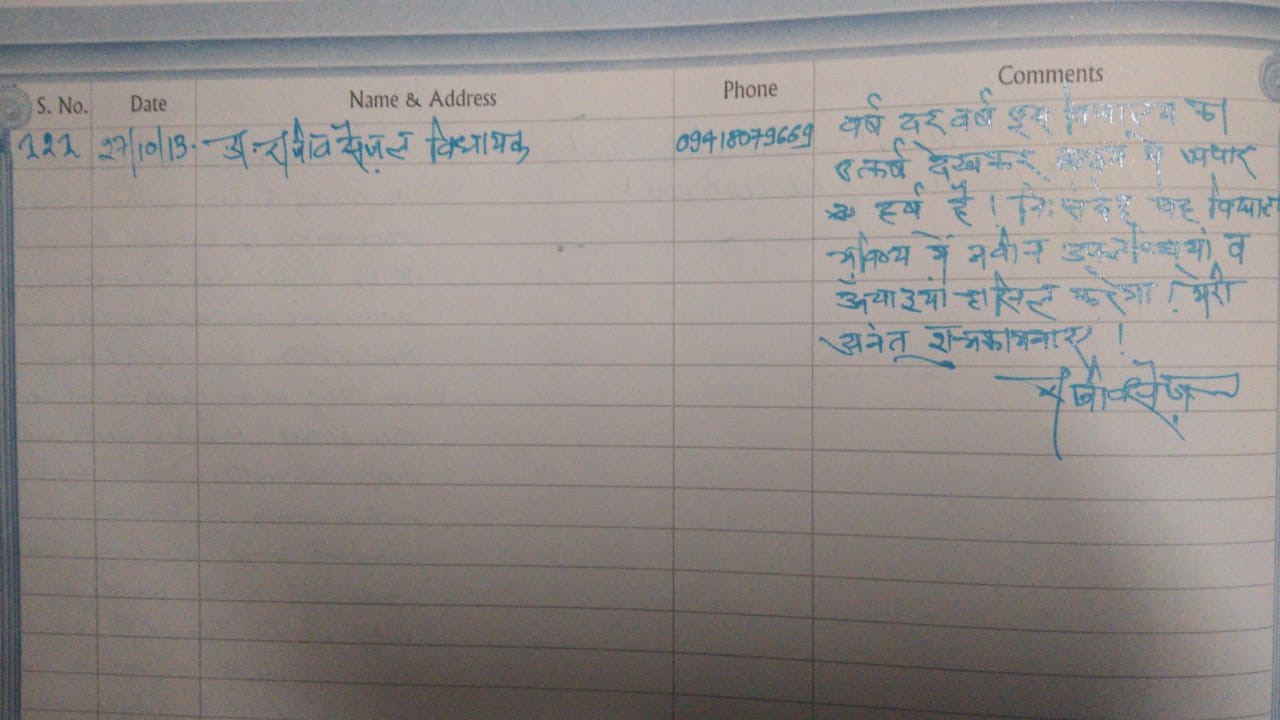 S. No. Date Name & Address Phone Comments
222 27/10/13 डा. राजीव सैजल विधायक 09418079669
वर्ष दर वर्ष इस विद्यालय का
उत्कर्ष देखकर में अपार
हर्ष है। निःसंदेह यह विद्यालय
भविष्य में नवीन उपलब्धियां व
ऊंचाइयां हासिल करेगा! मेरी
अनंत शुभकामनाएं!
राजीव सैजल